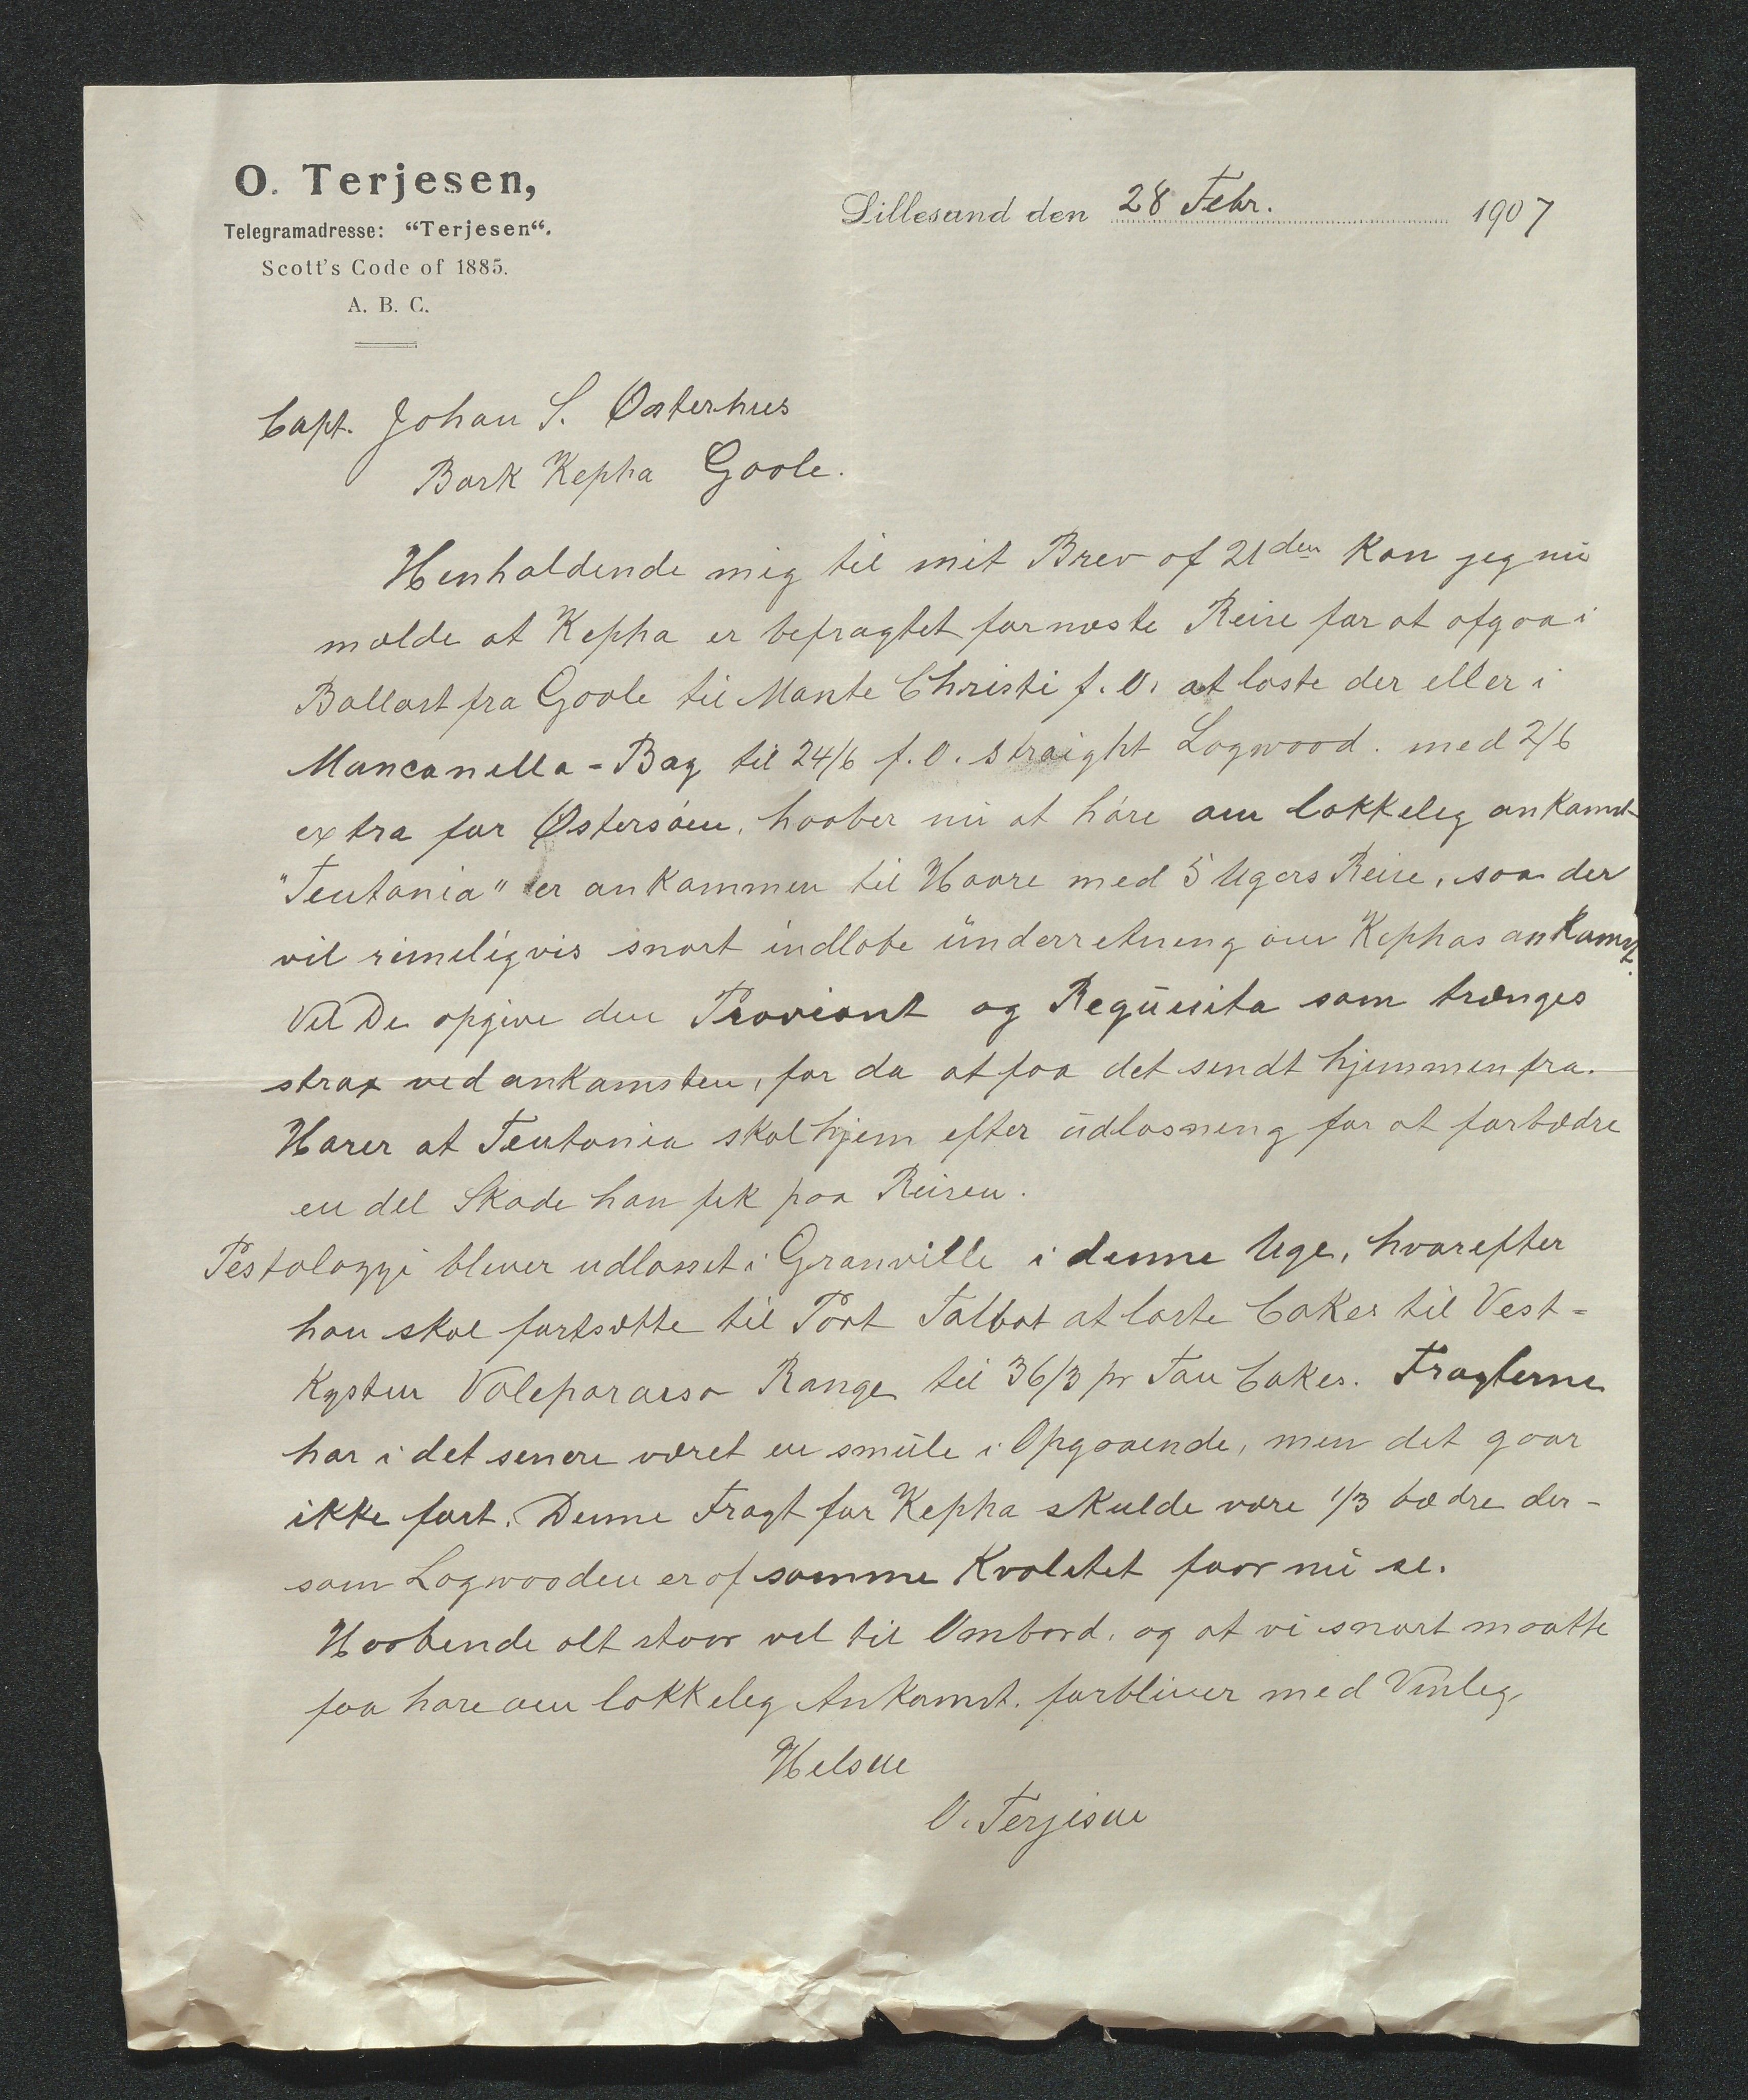 O. Terjesen,
Telegramadresse: “Terjesen“.
Scott's Code of 1885.
A. B. C.
Lillesand den 28 Febr. 1907
Capt. Johan S. Østerhus
Bark Kepha Goole.
Henholdende mig til mit Brev af 21den kan jeg nu
mælde at Kepha er befragtet for næste Reise for at afgaa i
Ballast fra Goole til Monte Christi f. O. at laste der eller i
Mancanilla-Bay til 24/6 f. O. straight Logwood. med 2/6
extra for Østersøen, haaber nu at høre om lokkelig ankomst
"Teutonia" er ankommen til Havre med 5 Ugers Reise, saa der
vil rimeligvis snart indløbe underretning om Kephas ankomst.
Vil De opgive den Proviant og Requisita som trænges
strax ved ankomsten, for da at faa det sendt hjemmenfra.
Hører at Teutonia skal hjem efter udlosning for at forbædre
en del Skade han fik paa Reisen.
Pestalozzi bliver udlosset i Granville i denne Uge, hvorefter
han skal fortsætte til Port Talbot at laste Cokes til Vest-
Kysten Valeparaiso Range til 36/3 pr Ton Cokes. Fragterne
har i det senere været en smule i Opgaaende, men det gaar
ikke fort. Denne Fragt for Kepha skulde være 1/3 bædre der-
som Logwooden er af samme Kvalitet faar nu se.
Haabende alt staar vel til Ombord, og at vi snart maatte
faa høre om lokkelig Ankomst. forbliver med Vinlig
Helsen
O. Terjesen